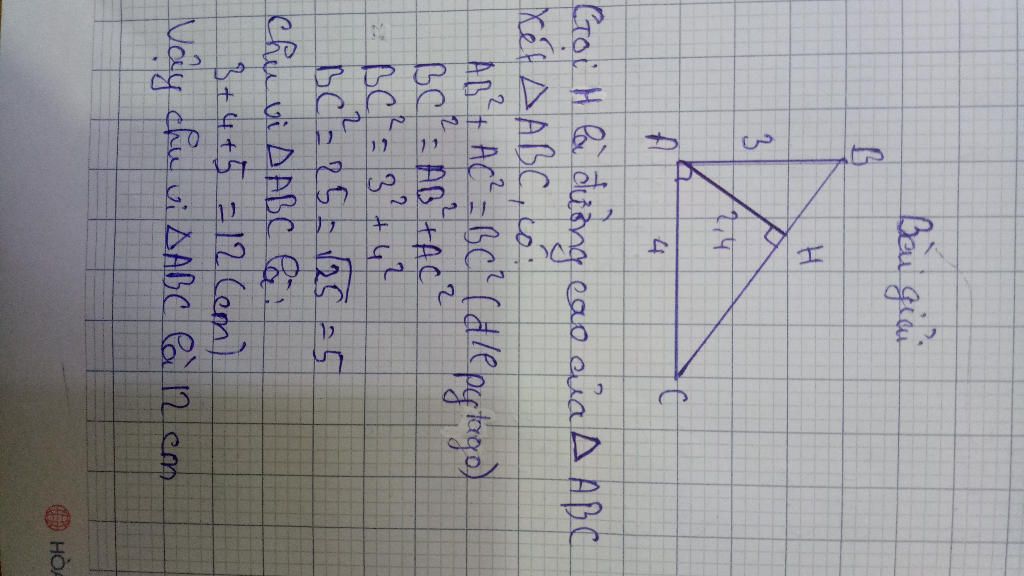 Bài giải
B
3
H
2,4
A
4
C
Gọi H là đường cao của △ ABC
Xét △ ABC, có:
AB² + AC² = BC² (d/l pytago)
BC² = AB² + AC²
BC² = 3² + 4²
BC² = 25 = √25 = 5
Chu vi △ABC là:
3 + 4 + 5 = 12 (cm)
Vậy chu vi △ABC là 12 cm